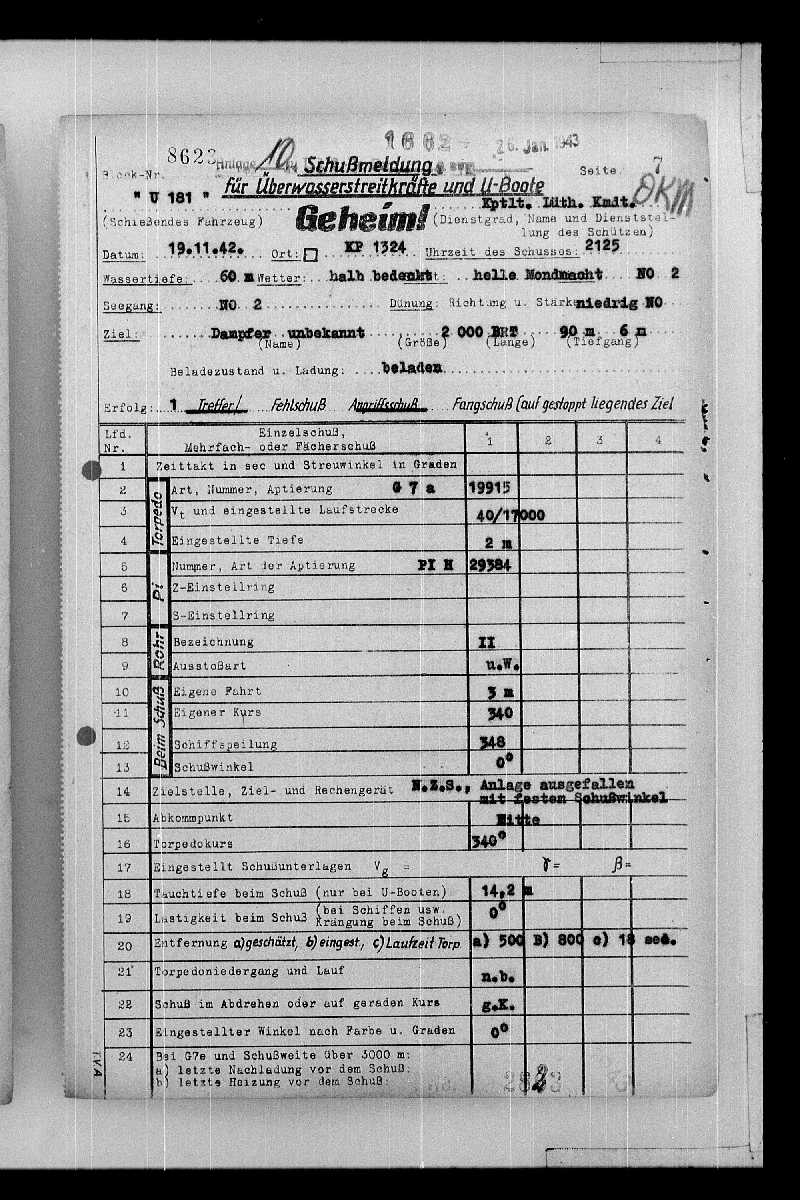 1662 26. Jan. 1943
8623 Anlage 10 Schußmeldung Seite 7
Block-Nr.
" U 181 " für Überwasserstreitkräfte und U-Boote
Kptlt. Lüth. Kmdt. OKM
(Schießendes Fahrzeug) Geheim! (Dienstgrad, Name und Dienststel-
lung des Schützen)
Datum: 19.11.42. Ort: KP 1324 Uhrzeit des Schusses: 2125
Wassertiefe: 60 m Wetter: halb bedeckt helle Mondnacht NO 2
Seegang: NO 2 Dünung: Richtung u. Stärke niedrig NO
Ziel: Dampfer unbekannt 2 000 BRT 90 m 6 m
(Name) (Größe) (Länge) (Tiefgang)
Beladezustand u. Ladung: beladen
Erfolg: 1 Treffer/ Fehlschuß Angriffsschuß Fangschuß (auf gestoppt liegendes Ziel
Lfd. Nr. Einzelschuß, Mehrfach- oder Fächerschuß 1 2 3 4
1 Zeittakt in sec und Streuwinkel in Graden
Torpedo
2 Art, Nummer, Aptierung G 7 a 19915
3 Vt und eingestellte Laufstrecke 40/17000
4 Eingestellte Tiefe 2 m
Pi
5 Nummer, Art der Aptierung PI H 29384
6 Z-Einstellring
7 S-Einstellring
Rohr
8 Bezeichnung II
9 Ausstoßart u.W.
Beim Schuß
10 Eigene Fahrt 3 m
11 Eigener Kurs 340
12 Schiffspeilung 348
13 Schußwinkel 0°
14 Zielstelle, Ziel- und Rechengerät N.Z.S., Anlage ausgefallen
mit festem Schußwinkel
15 Abkommpunkt Mitte
16 Torpedokurs 340°
17 Eingestellt Schußunterlagen Vg = γ= β=
18 Tauchtiefe beim Schuß (nur bei U-Booten) 14,2 m
19 Lastigkeit beim Schuß (bei Schiffen usw. Krängung beim Schuß) 0°
20 Entfernung a)geschätzt, b)eingest., c)Laufzeit Torp. a) 500 B) 800 c) 18 sec.
21 Torpedoniedergang und Lauf n.b.
22 Schuß im Abdrehen oder auf geraden Kurs g.K.
23 Eingestellter Winkel nach Farbe u. Graden 0°
24 Bei G7e und Schußweite über 3000 m:
a) letzte Nachladung vor dem Schuß:
b) letzte Heizung vor dem Schuß:
TVA